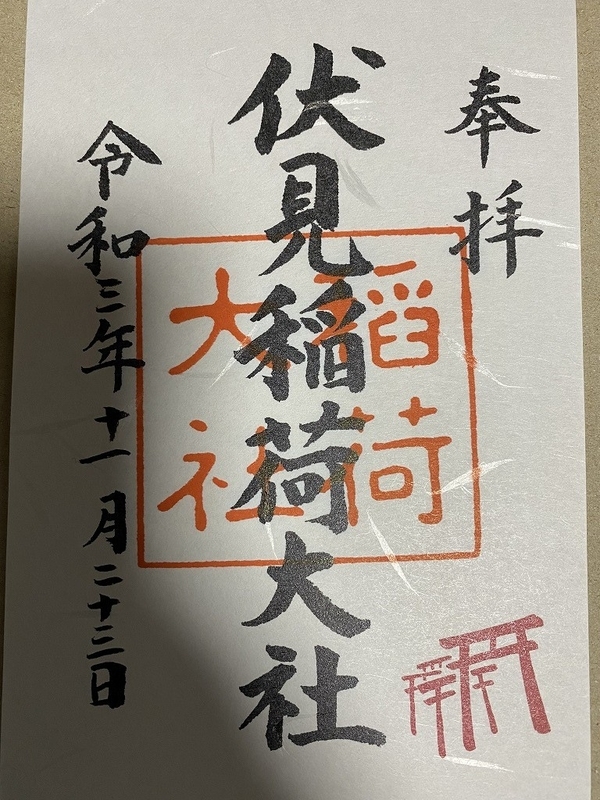 奉拝
伏見稲荷大社
稻荷
大社
令和三年十一月二十三日